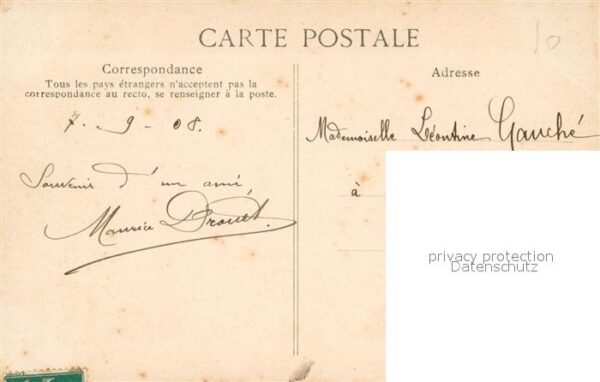 10
CARTE POSTALE
Correspondance
Tous les pays étrangers n'acceptent pas la
correspondance au recto, se renseigner à la poste.
7 - 9 - 08.
Souvenir d'un ami
Maurice Drouet.
Adresse
Mademoiselle Léontine Gauché
à
privacy protection
Datenschutz